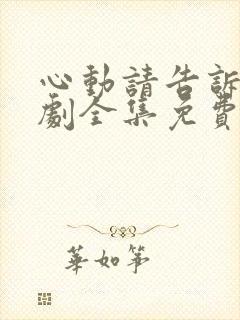 心動請告訴
劇全集免費
華如箏